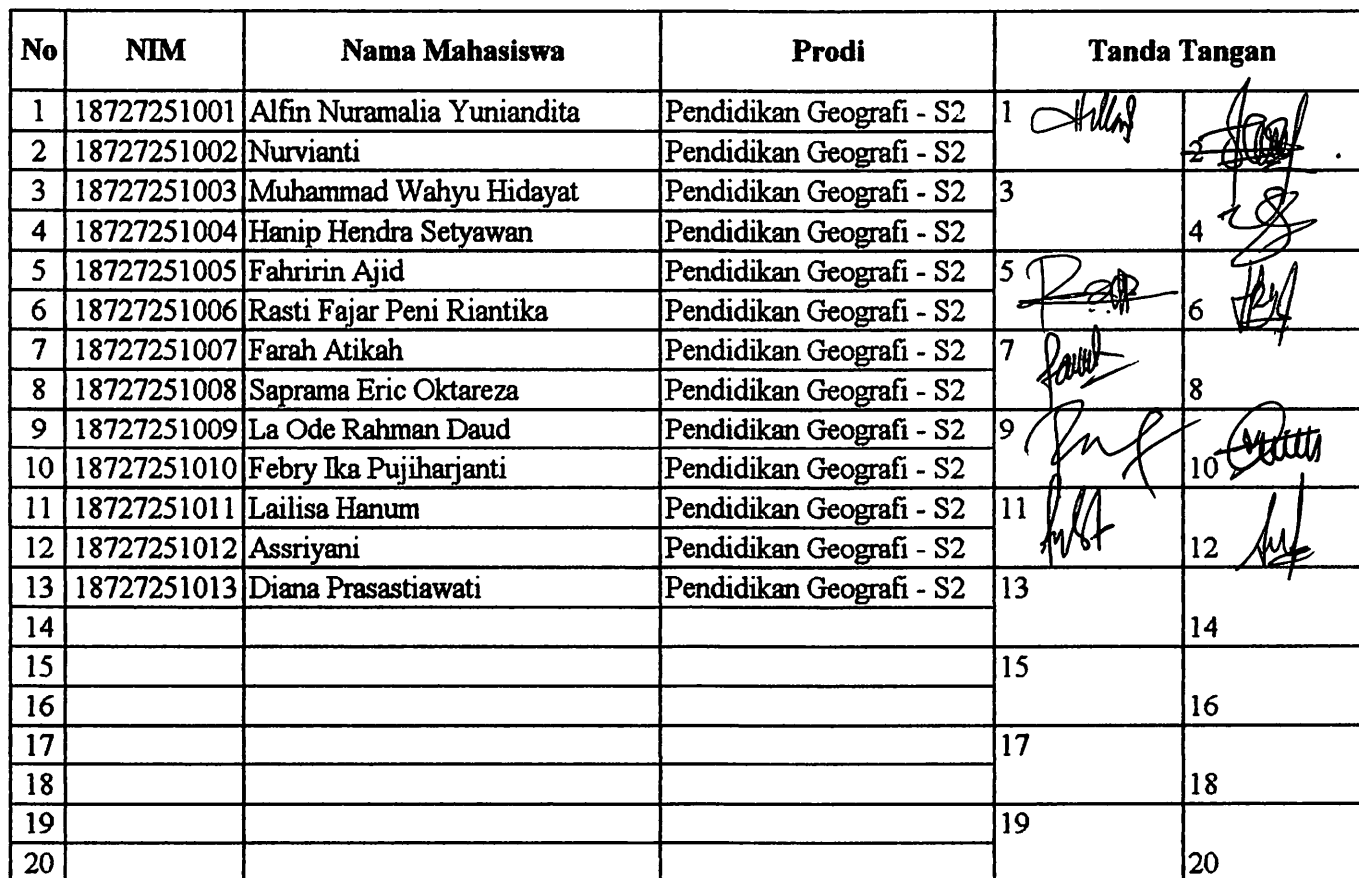 No NIM Nama Mahasiswa Prodi Tanda Tangan
1 18727251001 Alfin Nuramalia Yuniandita Pendidikan Geografi - S2 1
2 18727251002 Nurvianti Pendidikan Geografi - S2 2
3 18727251003 Muhammad Wahyu Hidayat Pendidikan Geografi - S2 3
4 18727251004 Hanip Hendra Setyawan Pendidikan Geografi - S2 4
5 18727251005 Fahririn Ajid Pendidikan Geografi - S2 5
6 18727251006 Rasti Fajar Peni Riantika Pendidikan Geografi - S2 6
7 18727251007 Farah Atikah Pendidikan Geografi - S2 7
8 18727251008 Saprama Eric Oktareza Pendidikan Geografi - S2 8
9 18727251009 La Ode Rahman Daud Pendidikan Geografi - S2 9
10 18727251010 Febry Ika Pujiharjanti Pendidikan Geografi - S2 10
11 18727251011 Lailisa Hanum Pendidikan Geografi - S2 11
12 18727251012 Assriyani Pendidikan Geografi - S2 12
13 18727251013 Diana Prasastiawati Pendidikan Geografi - S2 13
14 14
15 15
16 16
17 17
18 18
19 19
20 20